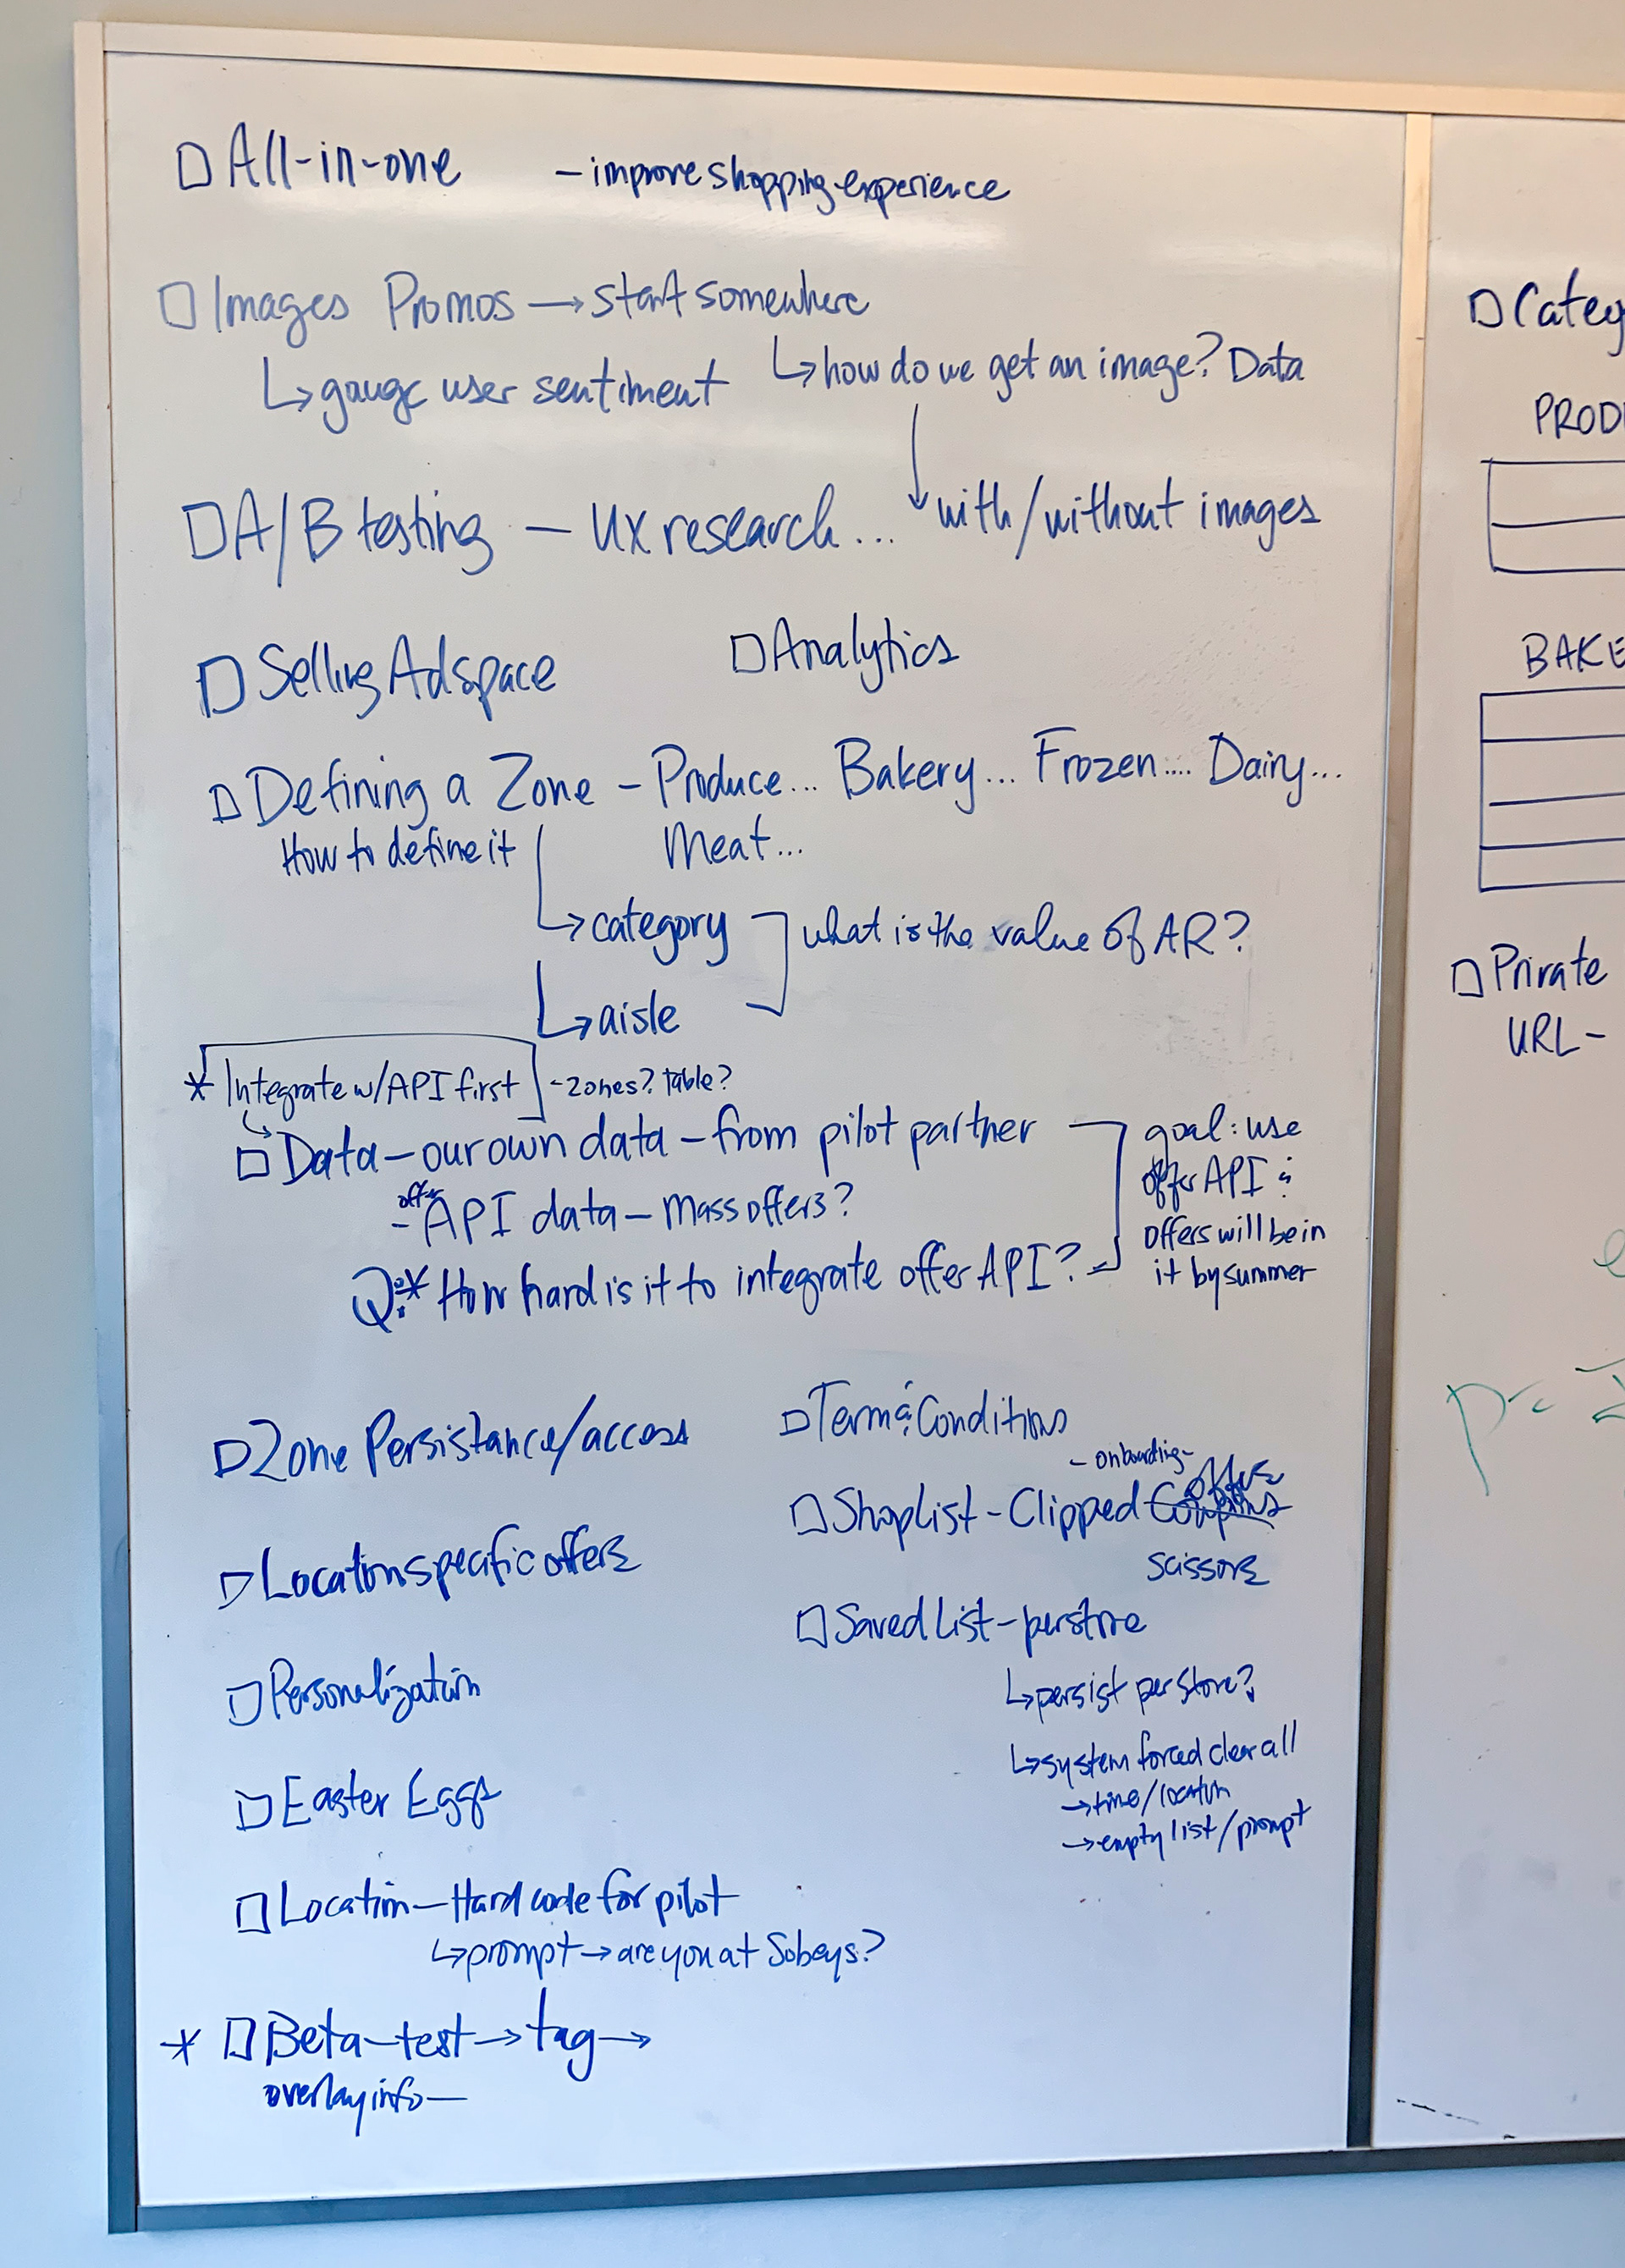 All-in-one - improve shopping experience
Images Promos → start somewhere
↳ gauge user sentiment ↳ how do we get an image? Data
A/B testing - UX research... with/without images
Selling Adspace
Analytics
Defining a Zone - Produce... Bakery... Frozen.... Dairy...
How to define it Meat...
↳ category what is the value of AR?
↳ aisle
* Integrate w/API first - Zones? Table?
Data - our own data - from pilot partner
offer
- API data - Mass offers?
Q:* How hard is it to integrate offer API?
goal: use
offer API &
offers will be in
it by summer
Zone Persistance/access
Location specific offers
Personalization
Easter Eggs
Location - Hard code for pilot
↳ prompt → are you at Sobeys?
* Beta-test → tag →
overlay info -
Term & Conditions
- onboarding -
offers
Shoplist - Clipped Coupons
scissors
Saved List - per store
↳ persist per store?
↳ system forced clear all
→ time/location
→ empty list/prompt
Categ
PROD
BAKE
Private
URL -